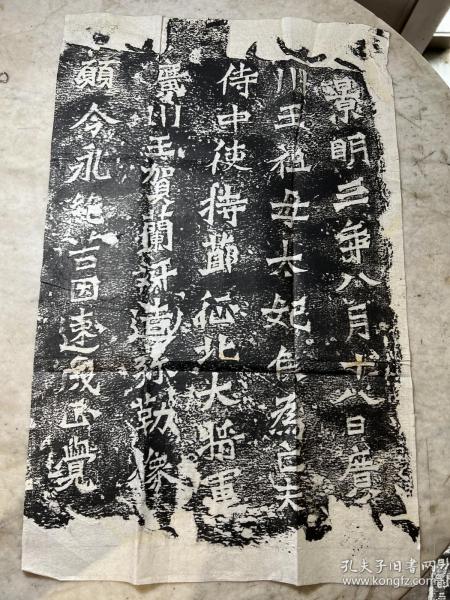 景明三年八月十八日廣
川王祖母太妃侯為亡夫
侍中使持節征北大將軍
廣川王賀蘭汗造弥勒像
願令永絕苦因速成正覺
孔夫子旧书网
www.kongfz.com